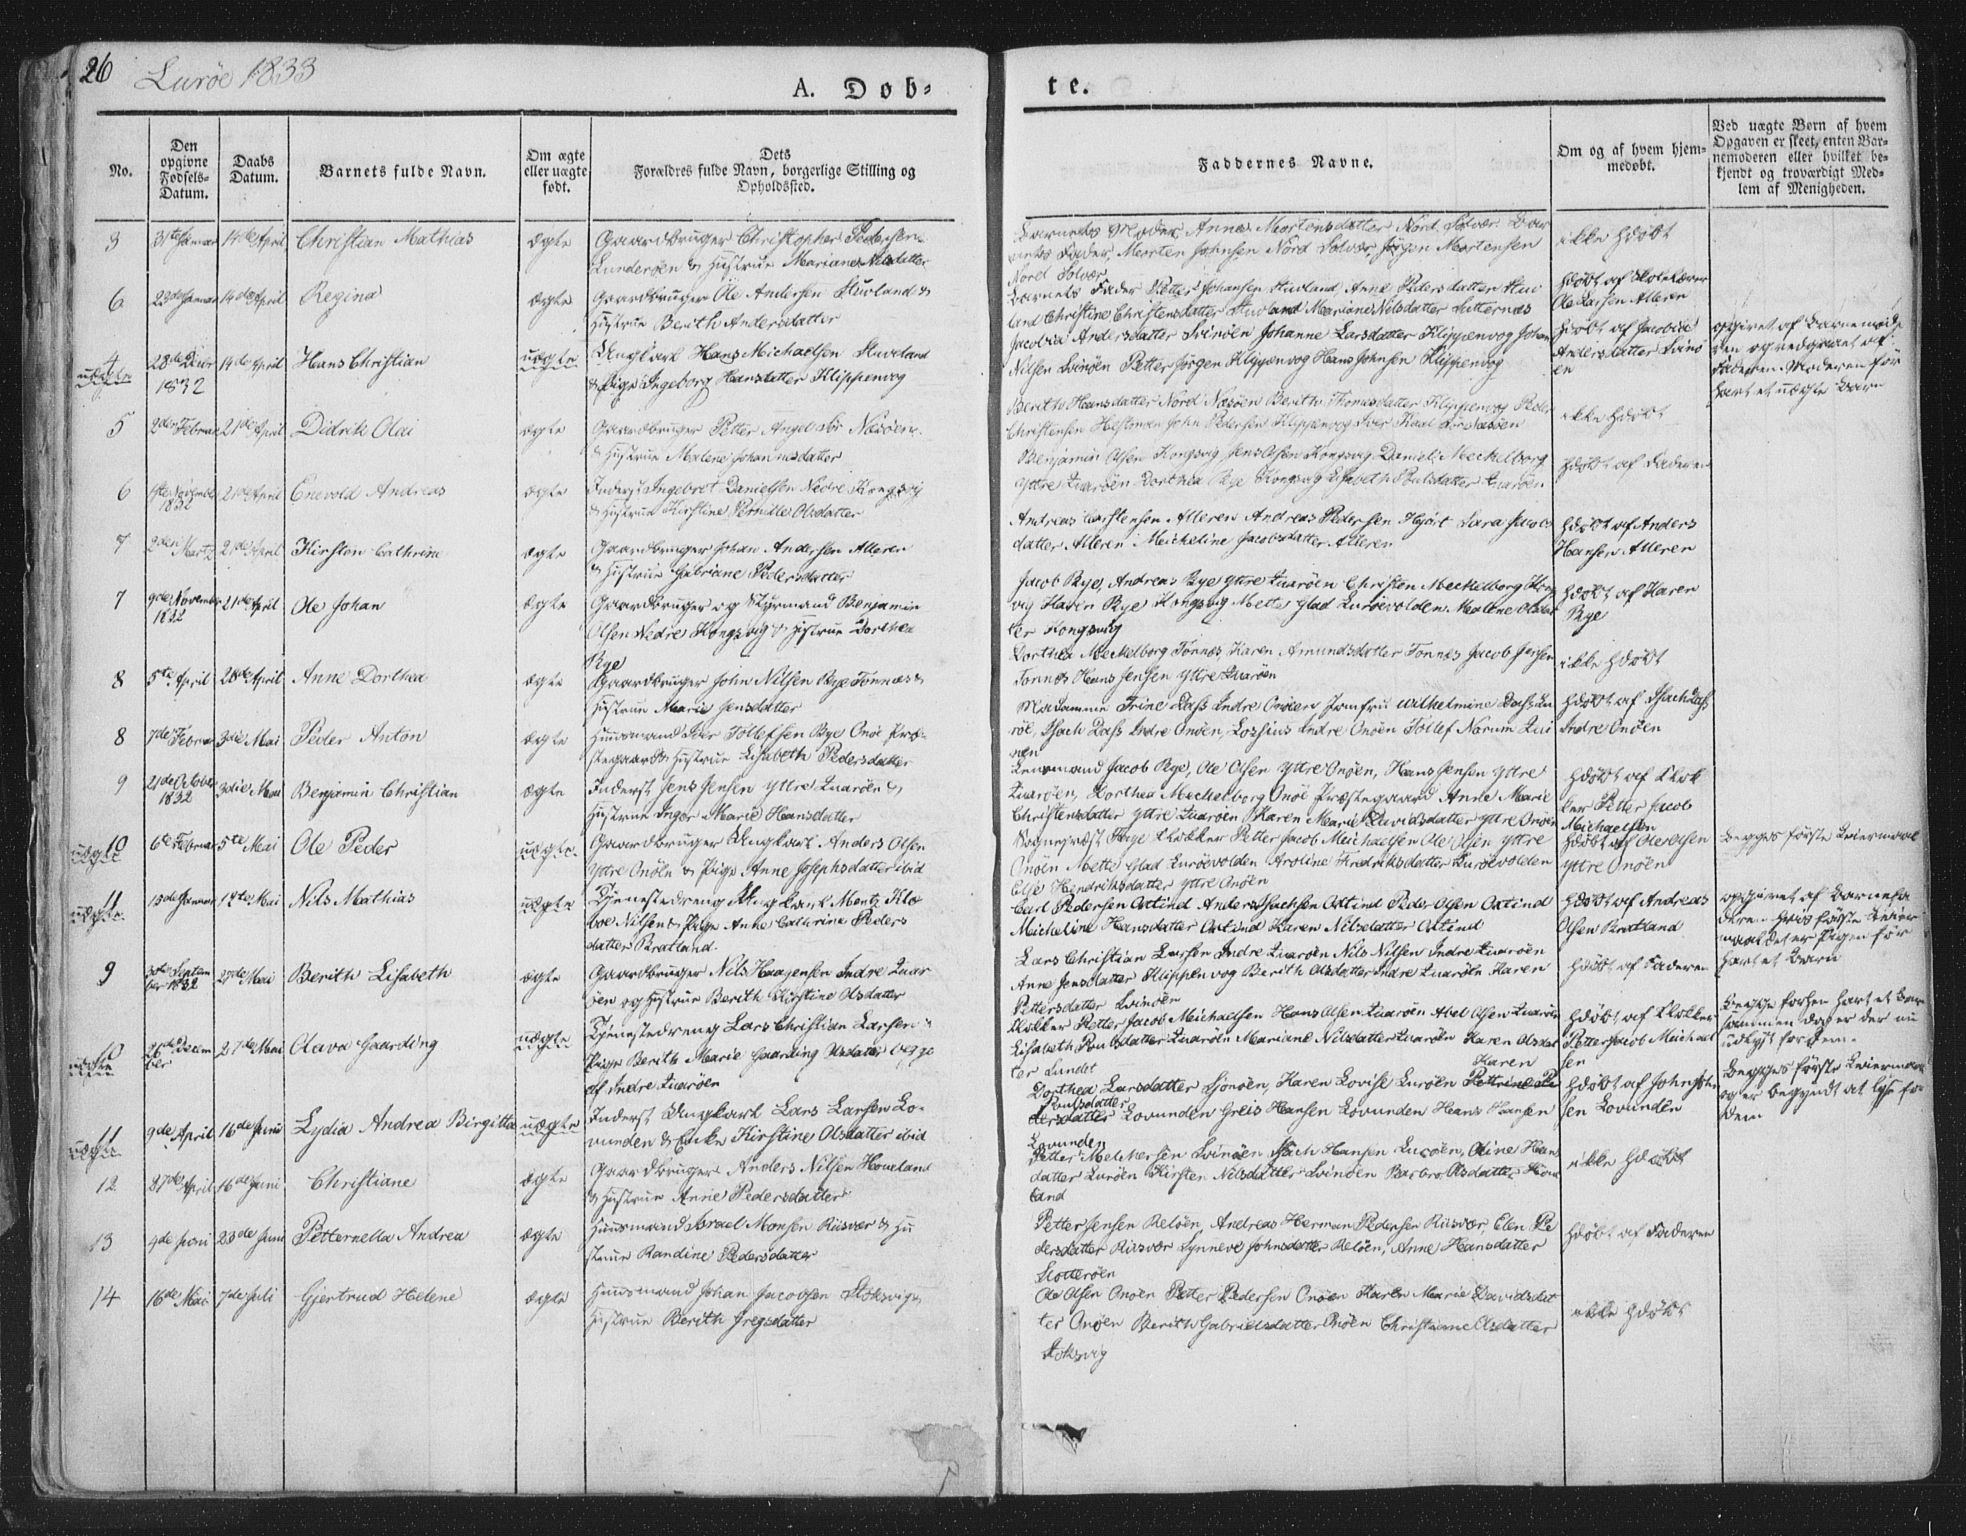 26 Lurøe 1833
A. Døb-
te.
No.
Den opgivne Fødsels-Datum.
Daabs Datum.
Barnets fulde Navn.
Om ægte eller uægte født.
Dets Forældres fulde Navn, borgerlige Stilling og Opholdssted.
Faddernes Navne.
Om og af hvem hjem-medøbt.
Ved uægte Børn af hvem Opgaven er skeet, enten Bar-nemoderen eller hvilket be-kjendt og troværdigt Med-lem af Menigheden.
3 31te Januar 14de April Christian Mathias ægte Gaardbruger Christopher Pedersen
Lunderøen & Hustrue Mariane Nilsdatter
Barnets Moder, Anne Mortensdatter Nord Solvær Bar
nets Fader, Morten Johnsen Nord Solvær, Jørgen Mortensen
Nord Solvær
ikke hdøbt
6 23de Januar 14de April Regina ægte Gaardbruger Ole Andersen Stuvland &
Hustrue Berith Andersdatter
Barnets Fader Petter Johansen Stuvland, Anne Pedersdatter Stuv
land Christine Christensdatter Stuvland Mariane Nilsdatter
hdøbt af Skolelærer
Ole Larsen Alteren
4 uægte 28de 1832 14de April Hans Christian uægte Ungkarl Hans Michaelsen Stuvland
& Pige Ingeborg Hansdatter Klippenvog
Jacobia Andersdatter Svinøen Johanne Larsdatter Klippenvog Johan
Nilsen Svinøen Petter Jørgen Klippenvog Hans Johnsen Klippenvog
hdøbt af Jacobia
Andersdatter Svinø
en
opgivet af Barnemode
ren og vedgaaet af
Faderen. Moderen før
havt et uægte Barn
5 2den Februar 21de April Didrik Olai ægte Gaardbruger Petter Angel Sør Næsøen
& Hustrue Malene Johannesdatter
Berith Hansdatter Nord Næsøen Berith Thomasdatter Klippenvog Peder
Christensen Hestman John Pedersen Klippenvog
ikke hdøbt
6 November 1832 21de April Enevold Andreas ægte Inderst Ingebret Danielsen Nedre Kongsvig
& Hustrue Kirstine Pernille Olsdatter
Benjamin Olsen Kongsvig Jens Olsen Kongsvig Daniel Meckelborg
Yttre Quarøen Dorthea Rye Kongsvig Elisabeth Poulsdatter Quarøen
hdøbt af Faderen
7 2den Martz 21de April Kirsten Cathrine ægte Gaardbruger Johan Andersen Alteren
& Hustrue Gabriane Pedersdatter
Andreas Carstensen Alteren Andreas Pedersen Hjort Sara Jacobs
datter Alteren Micheline Jacobsdatter Alteren
hdøbt af Anders
Hansen Alteren
7 9de November 1832 21de April Ole Johan ægte Gaardbruger og Styrmand Benjamin
Olsen Nedre Kongsvig & Hustrue Dorthea
Rye
Jacob Rye, Andreas Rye Yttre Quarøen Christen Meckelborg Kongs
vig Haren Rye Kongsvig Mette Glad Lurøevolden Malene Olsdat
ter Kongsvig
hdøbt af Haren
Rye
8 5te April 28de April Anne Dorthea ægte Gaardbruger John Nilsen Rye Tonnæs &
Hustrue Maria Jensdatter
Dorthea Meckelborg Tonnæs Karen Amundsdatter Tonnæs Jacob Jensen
Tonnæs Hans Jensen Yttre Quarøen
ikke hdøbt
8 7de Februar 3die Mai Peder Anton ægte Huusmand Iver Tollefsen Rye Onøe Præ-
stegaard & Hustrue Lisabeth Pedersdatter
Madamme Trine Dass Indre Onøen Jomfru Wilhelmine Dass Lu
røe, Isach Dass Indre Onøen, Lossius Indre Onøen Tollef Narum Qua
røen
hdøbt af Isach Dass
Indre Onøen
9 21de October 1832 3die Mai Benjamin Christian ægte Inderst Jens Jensen Yttre Quarøen &
Hustrue Inger Marie Hansdatter
Lensmand Jacob Rye, Ole Olsen Yttre Onøen, Hans Jensen Yttre
Quarøen, Dorthea Meckelborg Onøe Præstegaard Anne Marie
Christensdatter Yttre Quarøen Karen Marie Davidsdatter Yttre Onøen
hdøbt af Klok
ker Petter Jacob
Michaelsen
10 uægte 6te Februar 5te Mai Ole Peder uægte Gaardbruger Ungkarl Anders Olsen
Yttre Onøen & Pige Anne Josephsdatter ibid
Sogneprest Klokker Petter Jacob Michaelsen Ole Olsen Yttre
Onøen Mette Glad Lurøevolden Aroline Fredriksdatter Lurøevolden
Else Hendriksdatter Yttre Onøen
hdøbt af Ole Olsen
Yttre Onøen
Begges første Leiermaal
11 uægte 13de Januar 19te Mai Nils Mathias uægte Tjenestedreng Ungkarl Mentz Klo
boe Nilsen & Pige Anne Cathrine Peders
datter Bratland
Carl Pedersen Oxtind Anders Isachsen Oxtind Peder Olsen Oxtind
Micheline Hansdatter Oxtind Karen Nilsdatter Oxtind
hdøbt af Andreas
Olsen Bratland
opgivet af Barnefa
deren hvis første Leier
maal det er Pigen før
havt et Barn
9 30te Septem
ber 1832 Mai Berith Lisabeth ægte Gaardbruger Nils Haagensen Indre Quar
øen og Hustrue Berith Kirstine Olsdatter
Lars Christian Larsen Indre Quarøen Nils Nilsen Indre Quarøen
Anne Jensdatter Klippenvog Berith Olsdatter Indre Quarøen Karen
Pettersdatter Svinøen
hdøbt af Faderen
10 uægte 26de Decem
ber 27de Mai Olava Gaarding uægte Tjenestedreng Lars Christian Larsen &
Pige Berith Marie Gaarding Olsdatter begge
af Indre Quarøen
Klokker Petter Jacob Michaelsen Hans Olsen Quarøen Abel Olsen Quarøen
Lisabeth Poulsdatter Quarøen Mariane Nilsdatter Quarøen Karen Olsdat
ter Lundet
hdøbt af Klokker
Petter Jacob Michael
sen
Begge forhen havt et Barn
sammen dog er der nu
udlyst for dem
11 uægte 9de April 16de Juni Lydia Andrea Birgitta uægte Inderst Ungkarl Lars Larsen Lo-
vunden & Enke Kirstine Olsdatter ibid
Karen
Dorthea Larsdatter Sjonøen, Karen Lovise Lurøen Pettrine Pe
Poulsdatter
dersdatter Lovunden Greis Hansen Lovunden Hans Hansen
Lovunden
hdøbt af John John
sen Lovunden
Begges første Leiermaal
og er begyndt at lyse for
dem
12 27de April 16de Juni Christiane ægte Gaardbruger Anders Nilsen Hoveland
& Hustrue Anne Pedersdatter
Petter Melchersen Svinøen Isach Hansen Lurøen, Oline Hans
datter Lurøen Kirsten Nilsdatter Svinøen Barbro Olsdatter Hov
land
ikke hdøbt
13 4de Juni 23de Juni Petternella Andrea ægte Huusmand Israel Monsen Risvær & Hu
strue Randine Pedersdatter
Petter Jensen Reløen, Andreas Herman Pedersen Risvær, Elen Pe
dersdatter Risvær Synneve Johnsdatter Reløen, Anne Hansdatter
Slotterøen
hdøbt af Faderen
14 16de Mai 7de Juli Gjertrud Helene ægte Huusmand Johan Jacobsen Stoksvig &
Hustrue Berith Gregsdatter
Ole Olsen Onøen Petter Pedersen Onøen Karen Marie Davidsdat
ter Onøen Berith Gabrielsdatter Onøen Christiane Olsdatter
Stoksvig
ikke hdøbt